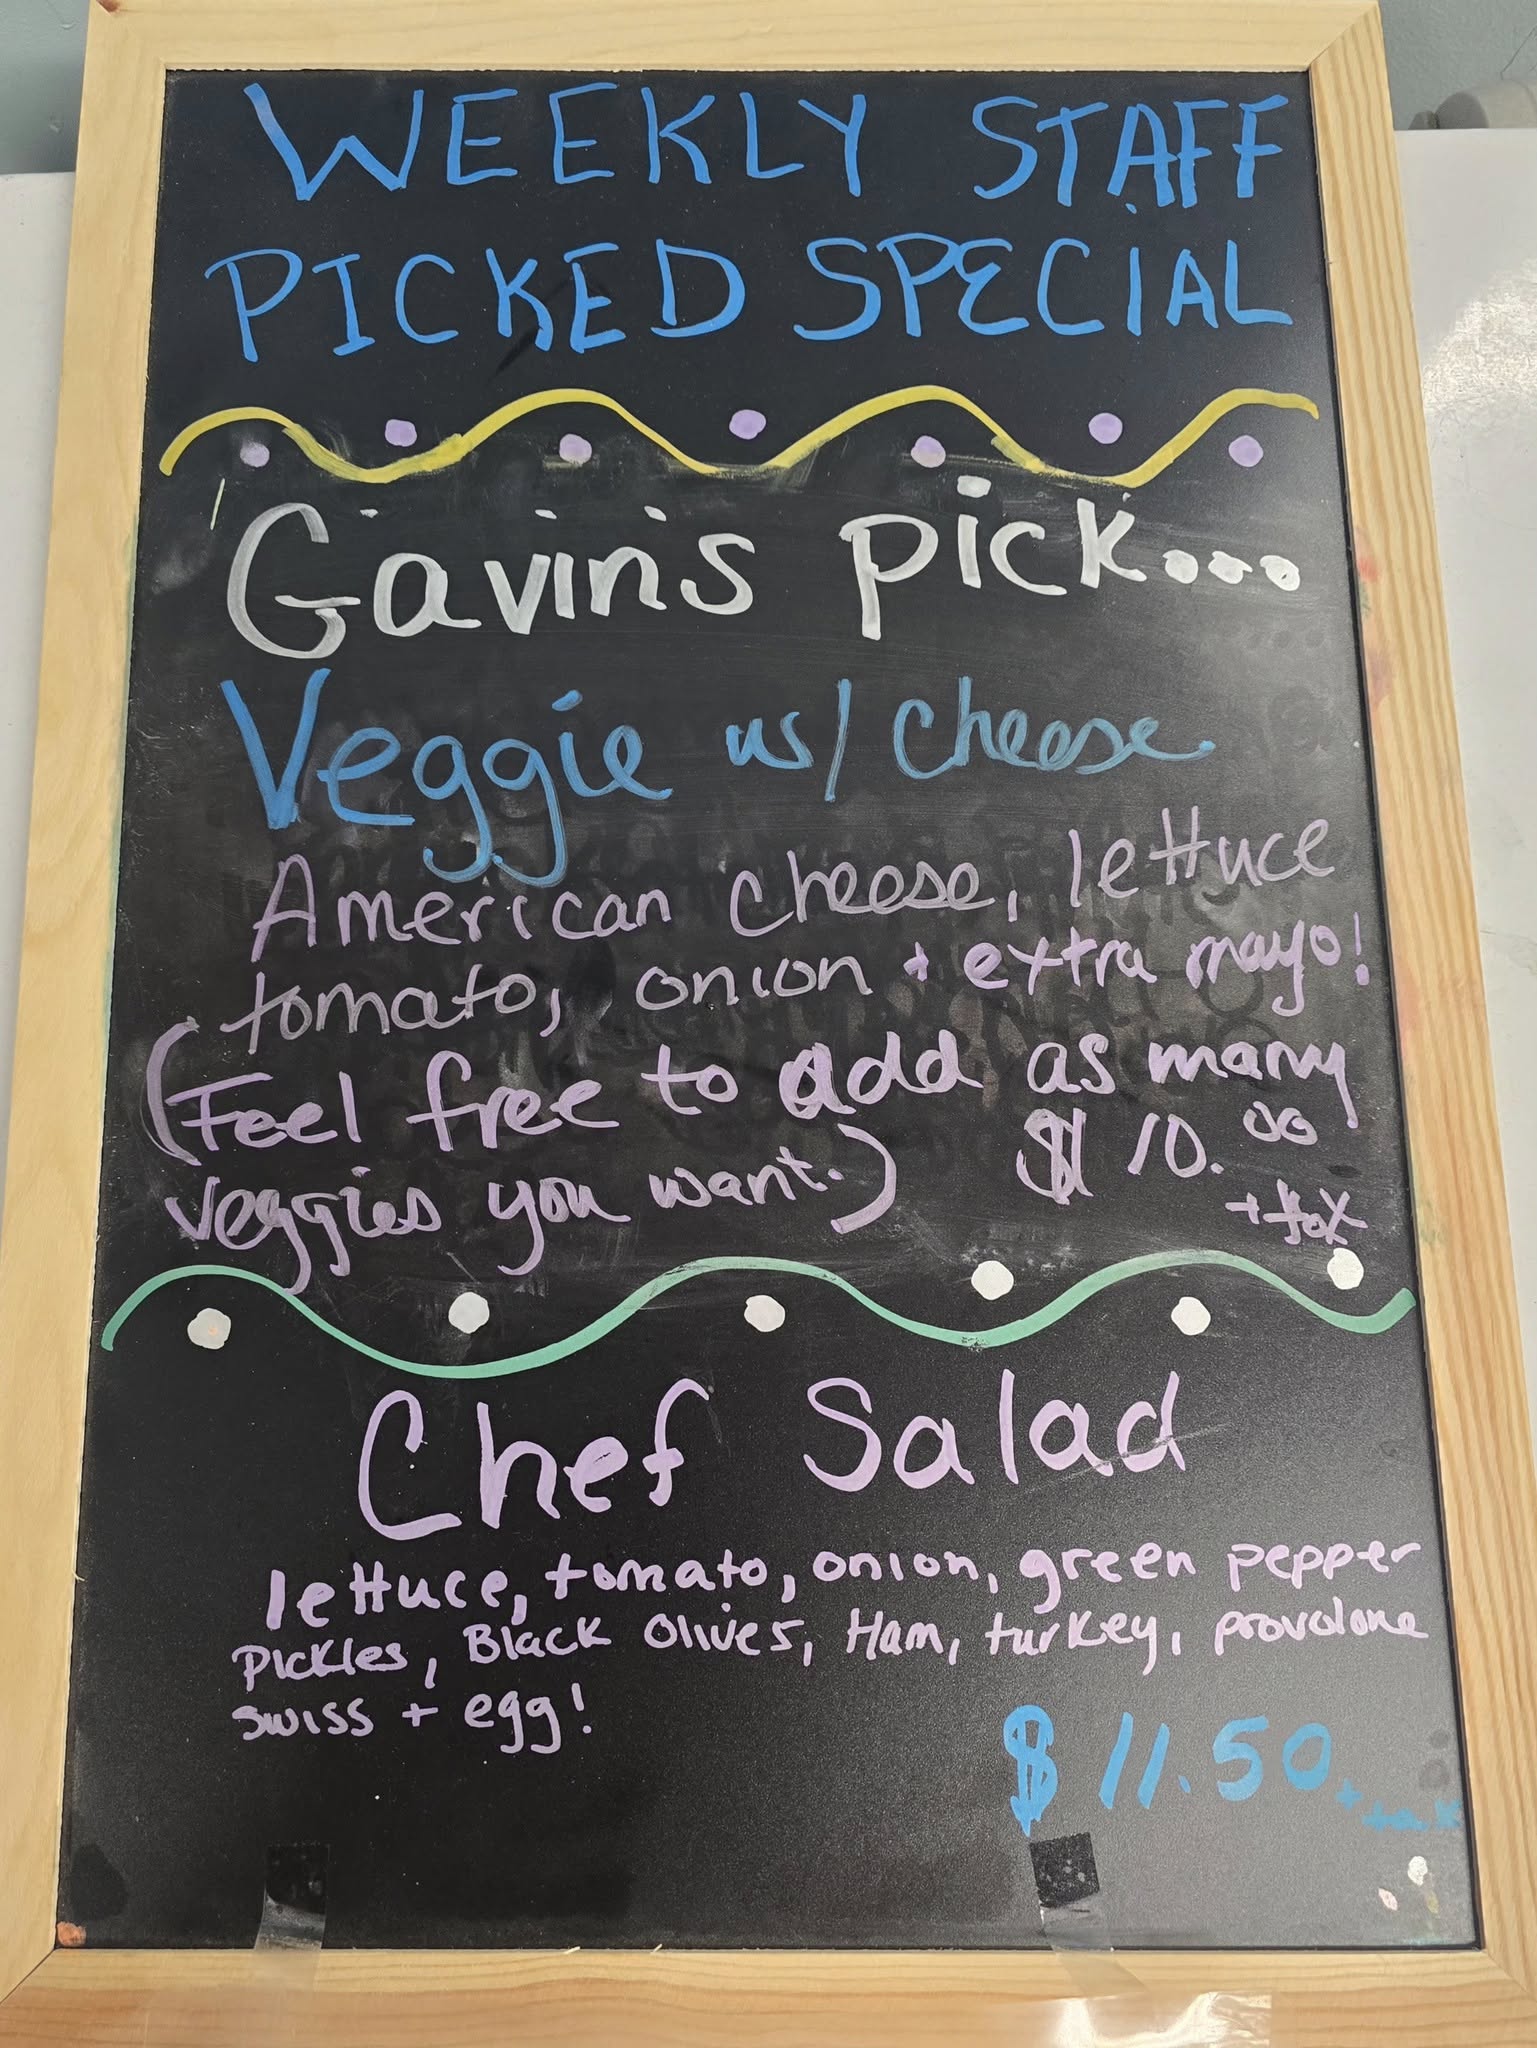 WEEKLY STAFF
PICKED SPECIAL
Gavin's pick...
Veggie w/ cheese
American cheese, lettuce
tomato, onion + extra mayo!
(Feel free to add as many
veggies you want.) $10.00
+ tax
Chef Salad
lettuce, tomato, onion, green pepper
Pickles, Black Olives, Ham, turkey, provolone
swiss + egg!
$11.50 + tax